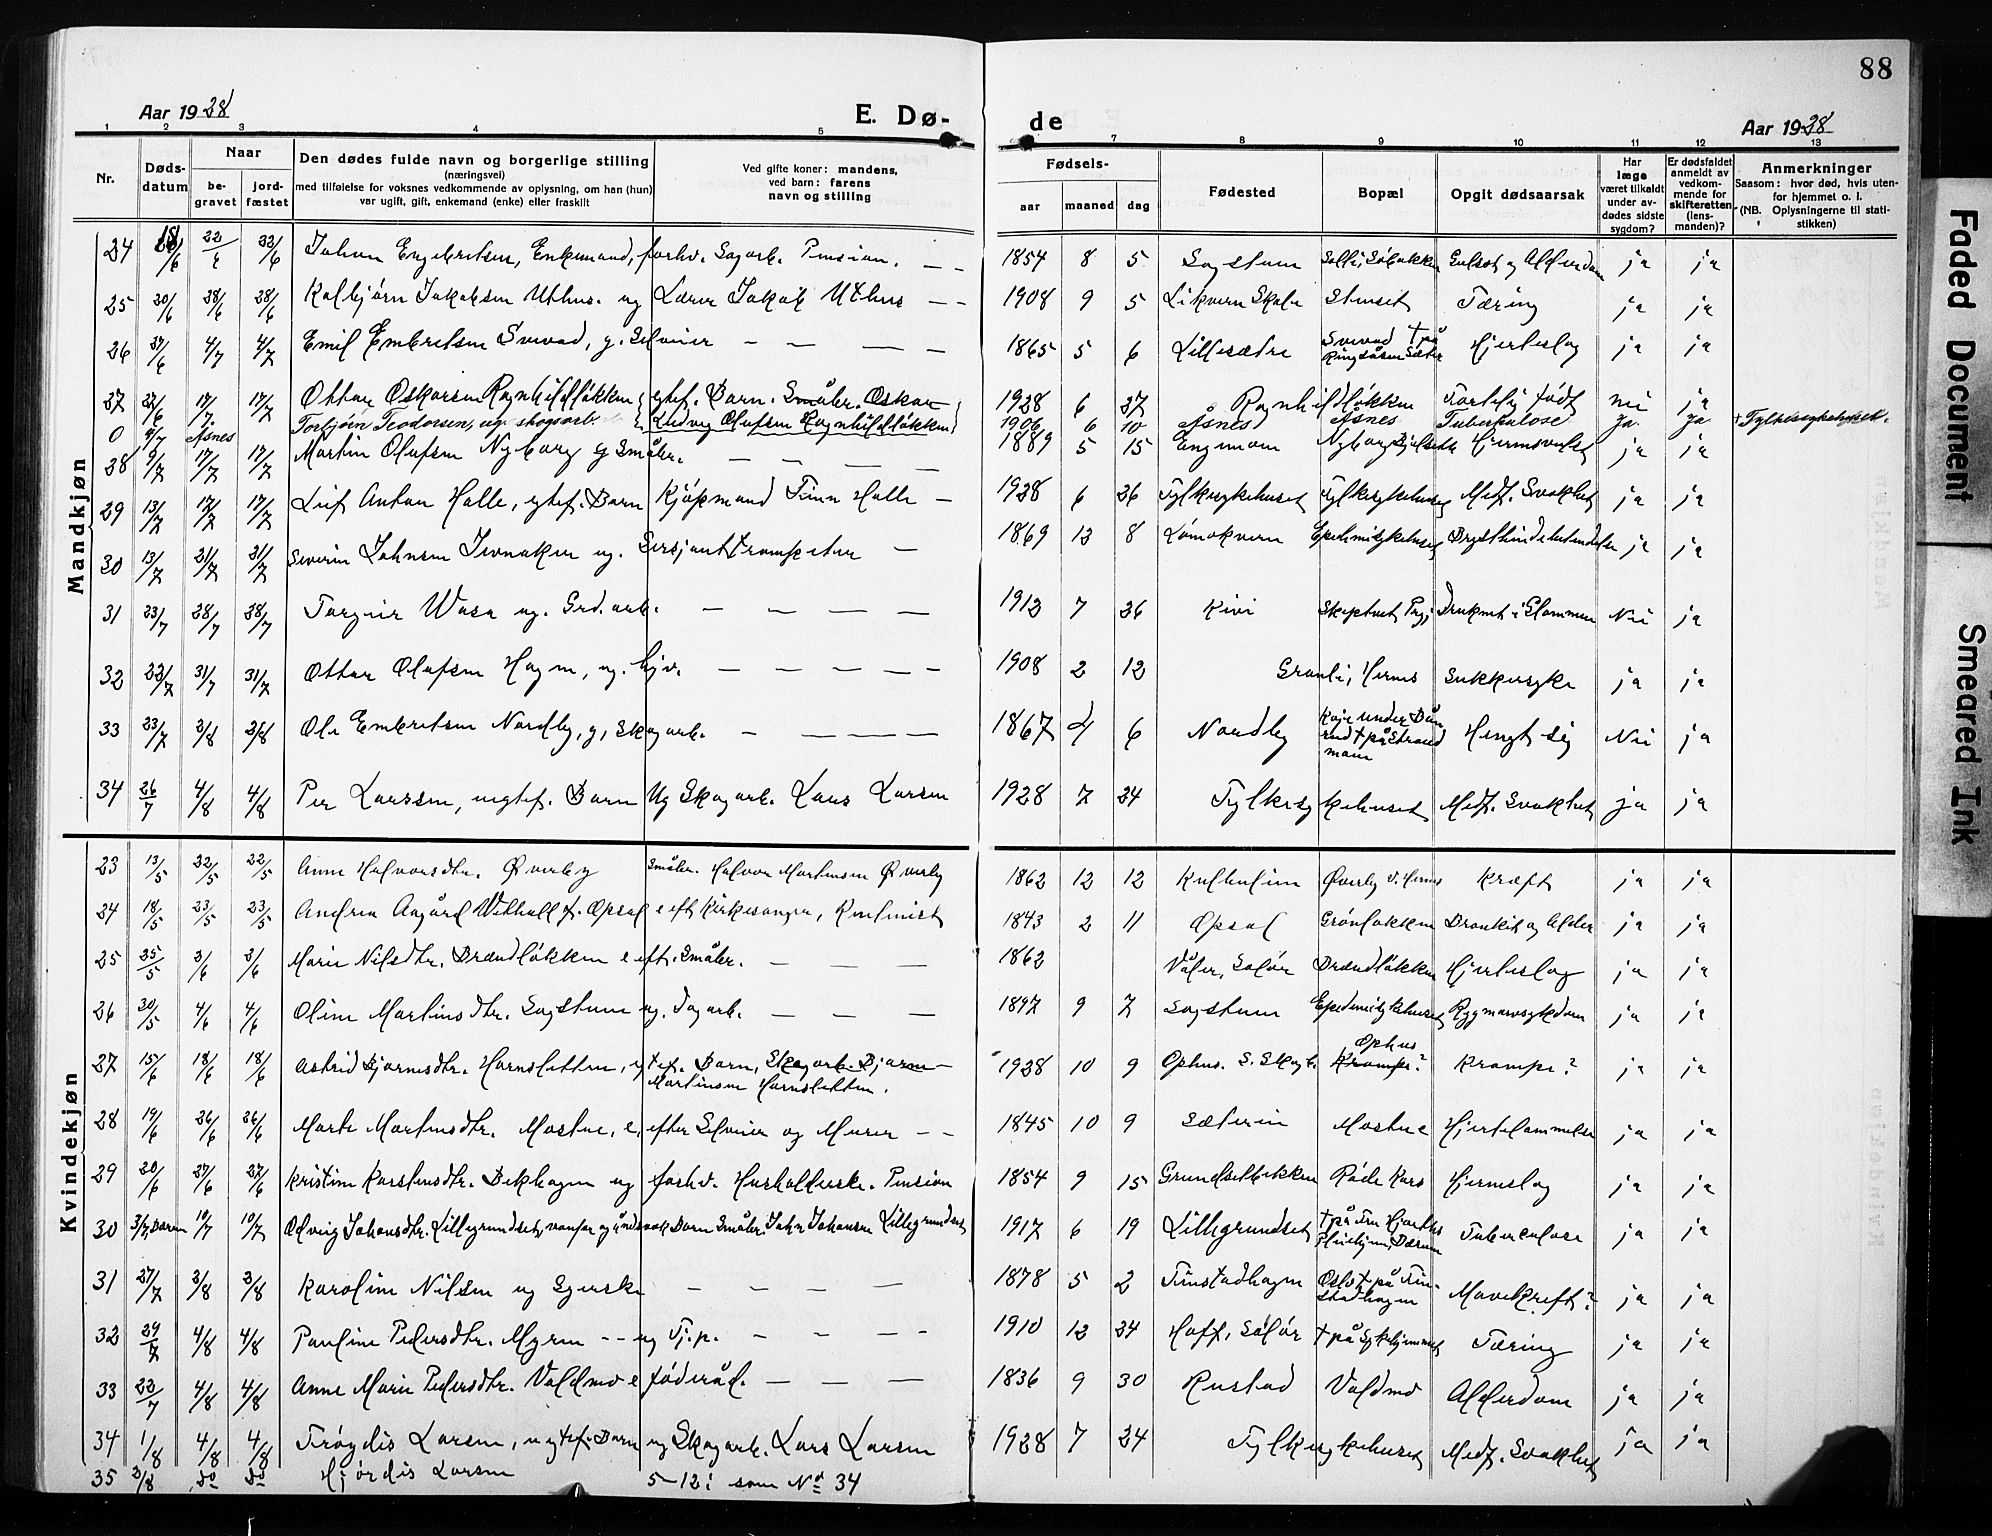 88
Aar 1928
E. Dø-
de
Aar 1928
1 2 3 4 5 7 8 9 10 11 12 13
Nr.
Døds-
datum
Naar
be-
gravet
jord-
fæstet
Den dødes fulde navn og borgerlige stilling
(næringsvei)
med tilføielse for voksnes vedkommende av oplysning, om han (hun)
var ugift, gift, enkemand (enke) eller fraskilt
Ved gifte koner: mandens,
ved barn: farens
navn og stilling
Fødsels-
aar
maaned
dag
Fødested
Bopæl
Opgit dødsaarsak
Har
læge
været tilkaldt
under av-
dødes sidste
sygdom?
Er dødsfaldet
anmeldt av
vedkom-
mende for
skifteretten
(lens-
manden)?
Anmerkninger
Saasom: hvor død, hvis uten-
for hjemmet o. l.
(NB. Oplysningerne til stati-
stikken)
Mandkjøn
24 18/6 22/6 22/6 Johan Engebretsen, Enkemand, forhv. Sagarb. Pension. — — 1854 8 5 Sagstuen og Alderdom ja ja
25 20/6 28/6 28/6 Kolbjørn Jakobsen Uthus. ug Lærer Jakob Uthus — — 1908 9 5 Likvern Skole Stenset Tæring ja ja
26 27/6 4/7 4/7 Emil Embretsen Svevad, g. Selveier — — — — 1865 5 6 Lillesætre Svevad † på Hjerteslag ja ja
27 27/6 17/7 17/7 Ottar Oskarsen Ragnhildløkken egtef. Barn. Småbr. Oskar 1928 6 27 Ragnhildløkken Fortidlig født nei ja
0 9/7 Åsnes Torbjørn Teodorsen, ug. skogsarb. Ludvig Olufsen Ragnhildløkken 1906 6 10 Åsnes Åsnes Tuberkulose ja. ja. † Fylkessykehuset.
28 9/7 17/7 17/7 Martin Olufsen Nyborg g Småbr. — — — — 1889 5 15 Engmoen Nyborg ja ja
29 13/7 17/7 17/7 Leif Anton Halle, egtef. Barn Kjøpmand Finn Halle — 1928 6 26 Fylkesykehuset Fylkesykehuset Medf. Svakhet ja ja
30 13/7 21/7 21/7 Severin Johnsen ug. Sersjant trompeter — 1869 12 8 Lømokvern Epedemisykehuset ja ja
31 23/7 28/7 28/7 Torgeir Wasa ug. Grd.arb. — — — — 1912 7 26 Kivi Skeptvet Prgj. Druknet i Glommen Nei ja
32 22/7 31/7 31/7 Ottar Olufsen Hagen, ug. hjv. — — — — 1908 2 12 Granli, Hernes Sukkersyke ja ja
33 23/7 2/8 2/8 Ole Embretsen Nordby, g, Skogarb. — — — — 1867 4 6 Nordby Koje under Hengt sig Nei ja
34 26/7 4/8 4/8 Per Larsen, uegtef. Barn Ug Skogarb. Lars Larsen 1928 7 24 Fylkesykehuset Medf. Svakhet ja ja
Kvindekjøn
23 13/5 22/5 22/5 Anne Halvorsdtr. Øverby Småbr. Halvor Martinsen Øverby 1862 12 12 Kulhusim Øverby v. Hernes Kræft ja ja
24 18/5 23/5 23/5 Andrea Aagård Withall f. Opsal e eft Kirkesanger, 1843 2 11 Opsal Grønløkken Bronkit og Alder ja ja
25 25/5 2/6 2/6 Marie Nilsdtr. Brændløkken e eft. Småbr. — — — 1862 Våler, Solør Brændløkken Hjerteslag ja ja
26 30/5 4/6 4/6 Oline Martinsdtr. Sagstuen ug. Dagarb. — — — 1897 9 7 Sagstuen Epedemisykehuset Rygmarvsykdom ja ja
27 15/6 18/6 18/6 Astrid Bjarnesdtr. Hornsletten, egtef. Barn, Skogarb. Bjarne 1928 10 9 Ophus. S. Skogb. Krampe? Krampe? ja ja
Ophus
Martinsen Hornsletten.
28 19/6 26/6 26/6 Marte Martinsdtr. Mostue, e, efter Selveier og Murer — — 1845 10 9 Sæterin Mostue Hjertelammelse ja ja
29 20/6 27/6 27/6 Kristine Karstensdtr. Bekhagen ug forhv. Husholderske. Pension 1854 9 15 Grundsetbækken Røde Kors Hjerneslag ja ja
30 3/7, Bærum 10/7 10/7 Johansdtr. Lillegrundset, Barn Småbr. Johan Johansen Lillegrundset 1917 6 19 Lillegrundset † på Fru Pleiehjem, Bærum Tuberculose ja ja
31 27/7 2/8 2/8 Karoline Nilsen ug Syerske — — — 1878 5 2 Finstadhagen Oslo † på Fin- Mavekreft? ja ja
stadhagen
32 29/7 4/8 4/8 Pauline Pedersdtr. Myren — — ug Tj.p. — — — — 1910 12 24 Hoff, Solør † på Sykehjemmet Tæring ja ja
33 22/7 4/8 4/8 Anne Marie Pedersdtr. Voldmo e føderåd. — — — 1836 9 30 Rustad Voldmo Alderdom ja ja
34 1/8 4/8 4/8 Frøydis Larsen, uegtef. Barn ug Skogarb. Lars Larsen 1928 7 24 Fylkesykehuset Medf. Svakhet ja ja
35 2/8 do do Hjørdis Larsen 5–12: som No 34
Faded Document
Smeared Ink